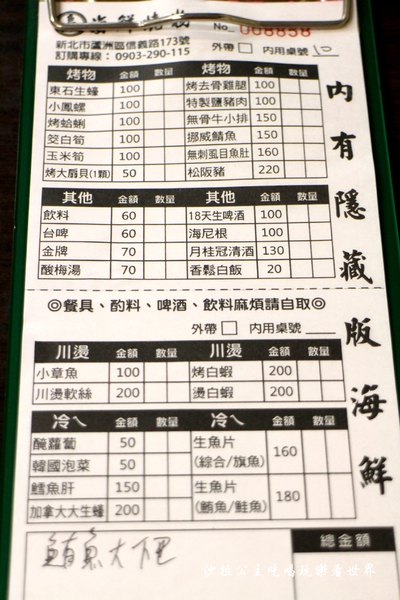 海鮮燒烤
No. 008858
新北市蘆洲區信義路173號
訂購專線：0903-290-115
外帶 內用桌號 10
烤物 金額 數量 烤物 金額 數量
東石生蠔 100 烤去骨雞腿 100
小鳳螺 100 特製鹽豬肉 100
烤蛤蜊 100 無骨牛小排 150
筊白筍 100 挪威鯖魚 150
玉米筍 100 無刺虱目魚肚 160
烤大扇貝(1顆) 50 松阪豬 220
其他 金額 數量 其他 金額 數量
飲料 60 18天生啤酒 100
台啤 60 海尼根 100
金牌 70 月桂冠清酒 130
酸梅湯 70 香鬆白飯 20
◎餐具、酌料、啤酒、飲料麻煩請自取◎
外帶 內用桌號
川燙 金額 數量 川燙 金額 數量
小章魚 100 烤白蝦 200
川燙軟絲 200 燙白蝦 200
冷ㄟ 金額 數量 冷ㄟ 金額 數量
醃蘿蔔 50 生魚片(綜合/旗魚) 160
韓國泡菜 50
鱈魚肝 150 生魚片(鮪魚/鮭魚) 180
加拿大大生蠔 200
總金額
鮪魚大肥
內有隱藏版海鮮
沙拉公主吃喝玩樂看世界